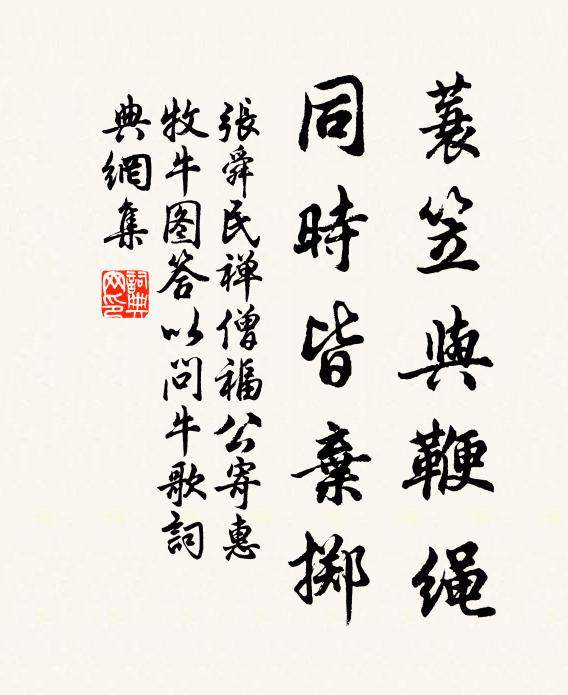 蓑笠與鞭绳
同時皆棄掷
張舜民禅僧福公寄惠
牧牛图答以问牛歌詞
典網集
詞典
网印